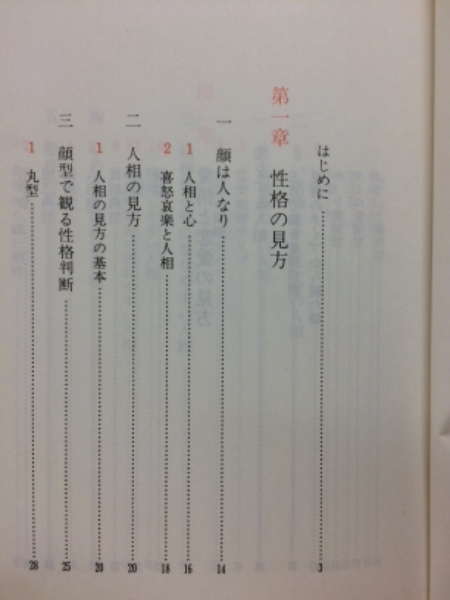 はじめに 3
第一章 性格の見方
一 顔は人なり 14
1 人相と心 16
2 喜怒哀楽と人相 18
二 人相の見方 20
1 人相の見方の基本 20
三 顔型で観る性格判断 25
1 丸型 28